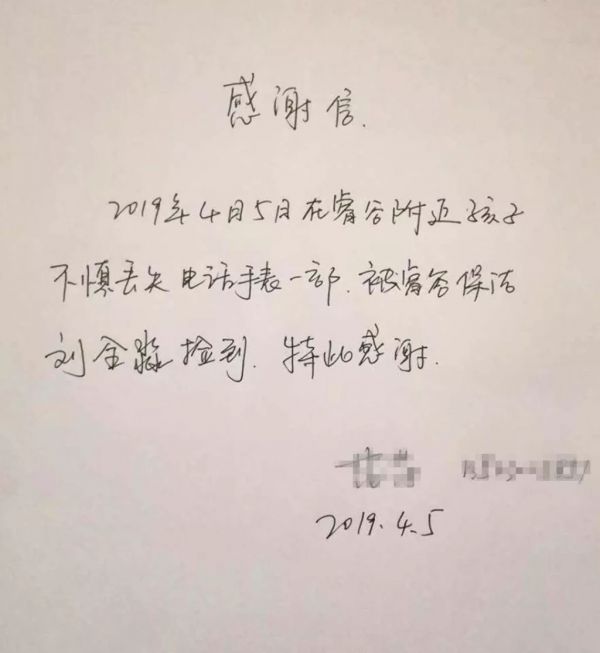 感谢信.
2019年4月5日在睿谷附近孩子
不慎丢失电话手表一部.被睿谷保洁
刘全淼捡到.特此感谢.
2019.4.5